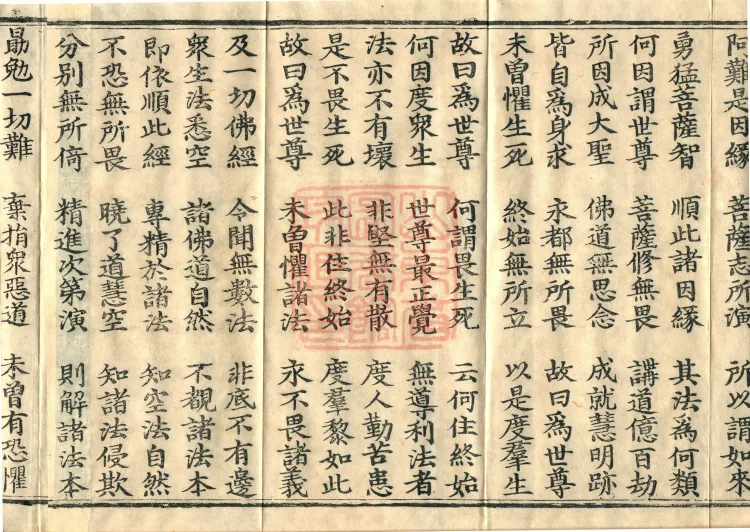 阿難是因緣 菩薩志所演 所以謂如來
勇猛菩薩智 順此諸因緣 其法為何類
何因謂世尊 菩薩修無畏 講道億百劫
所因成大聖 佛道無思念 成就慧明跡
皆自為身求 永都無所畏 故曰為世尊
未曾懼生死 終始無所立 以是度羣生
故曰為世尊 何謂畏生死 云何住終始
何因度眾生 世尊最正覺 無導利法者
法亦不有壞 非堅無有散 度人勤苦患
是不畏生死 此非住終始 度羣黎如此
故曰為世尊 未曾懼諸法 永不畏諸義
及一切佛經 令聞無數法 非底不有邊
眾生法悉空 諸佛道自然 不覩諸法本
即依順此經 專精於諸法 知空法自然
不恐無所畏 曉了道慧空 知諸法侵欺
分別無所倚 精進次第演 則解諸法本
勗勉一切難 棄捐眾惡道 未曾有恐懼